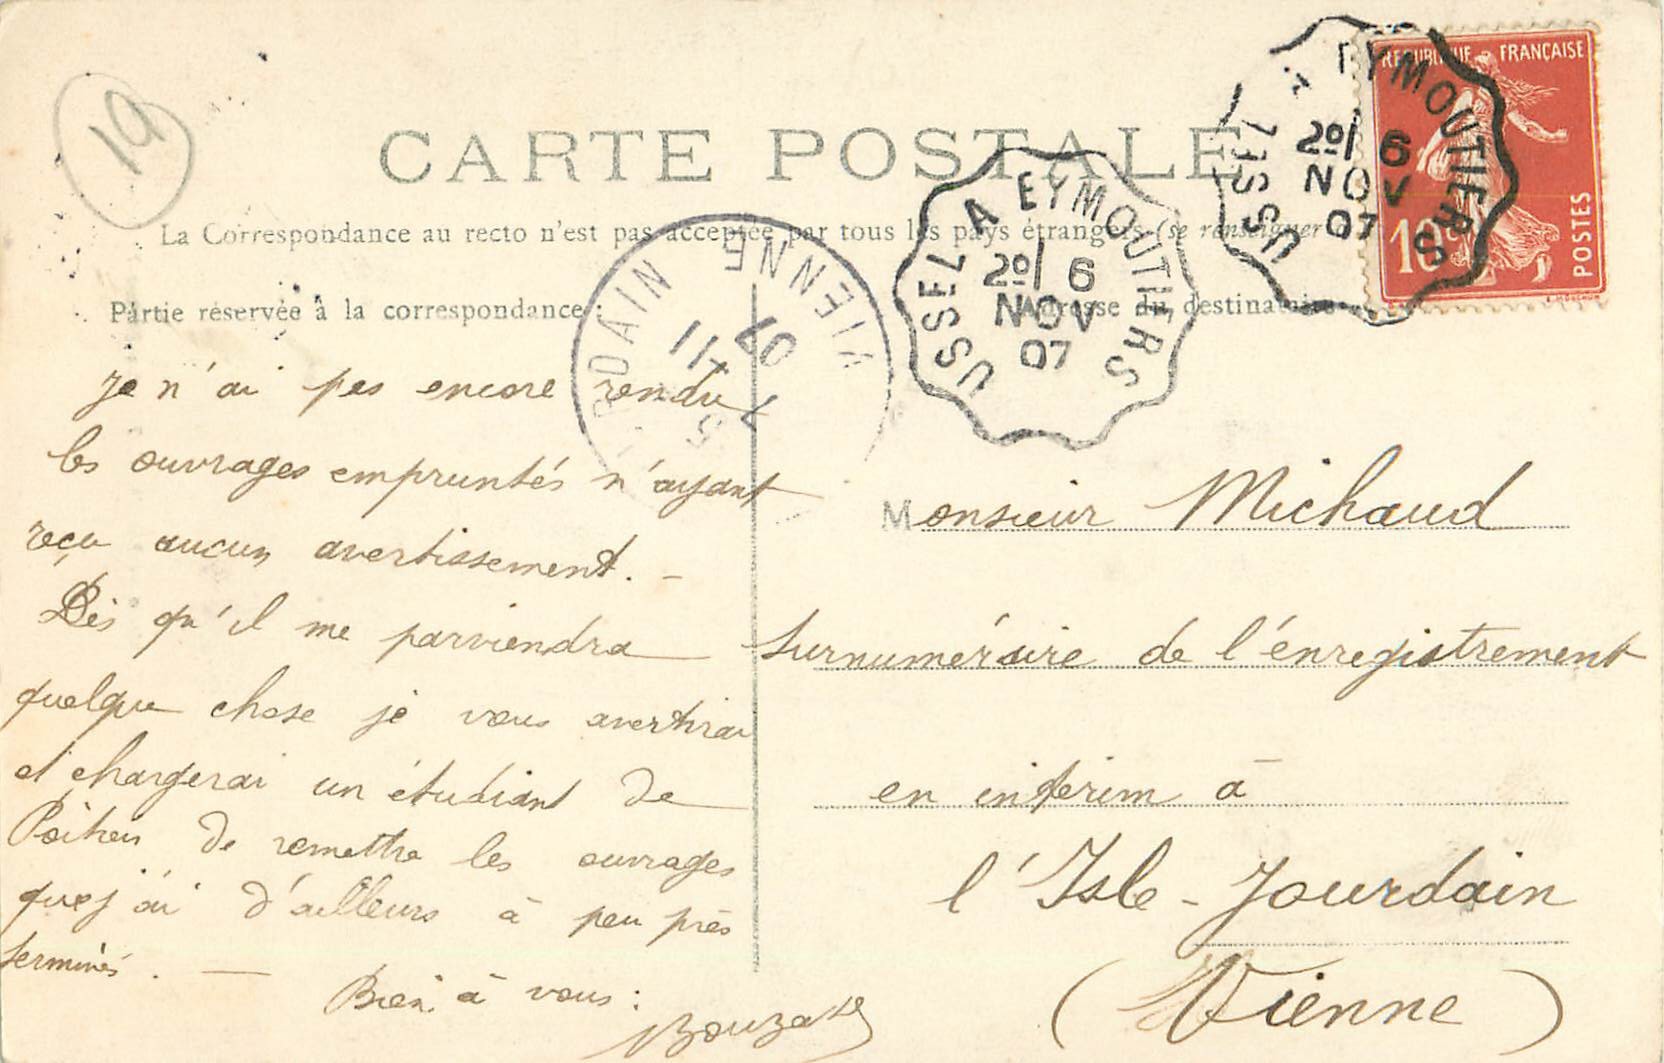 19
CARTE POSTALE
La Correspondance au recto n'est pas acceptée par tous les pays étrangers (se renseigner
Partie réservée à la correspondance :
Adresse du destinataire
RÉPUBLIQUE FRANÇAISE
10
POSTES
USSEL A EYMOUTIERS
2º/ 6
NOV
07
USSEL A EYMOUTIERS
2º/ 6
NOV
07
JOURDAIN VIENNE
7 -11
07
je n'ai pas encore rendu
les ouvrages empruntés n'ayant
reçu aucun avertissement. -
Dès qu'il me parviendra
quelque chose je vous avertirai
et chargerai un étudiant de
Poitiers de remettre les ouvrages
que j'ai d'ailleurs à peu près
terminés. —
Bien à vous :
Monsieur Michaud
surnuméraire de l'énregistrement
en intérim à
l'Isle-Jourdain
(Vienne)